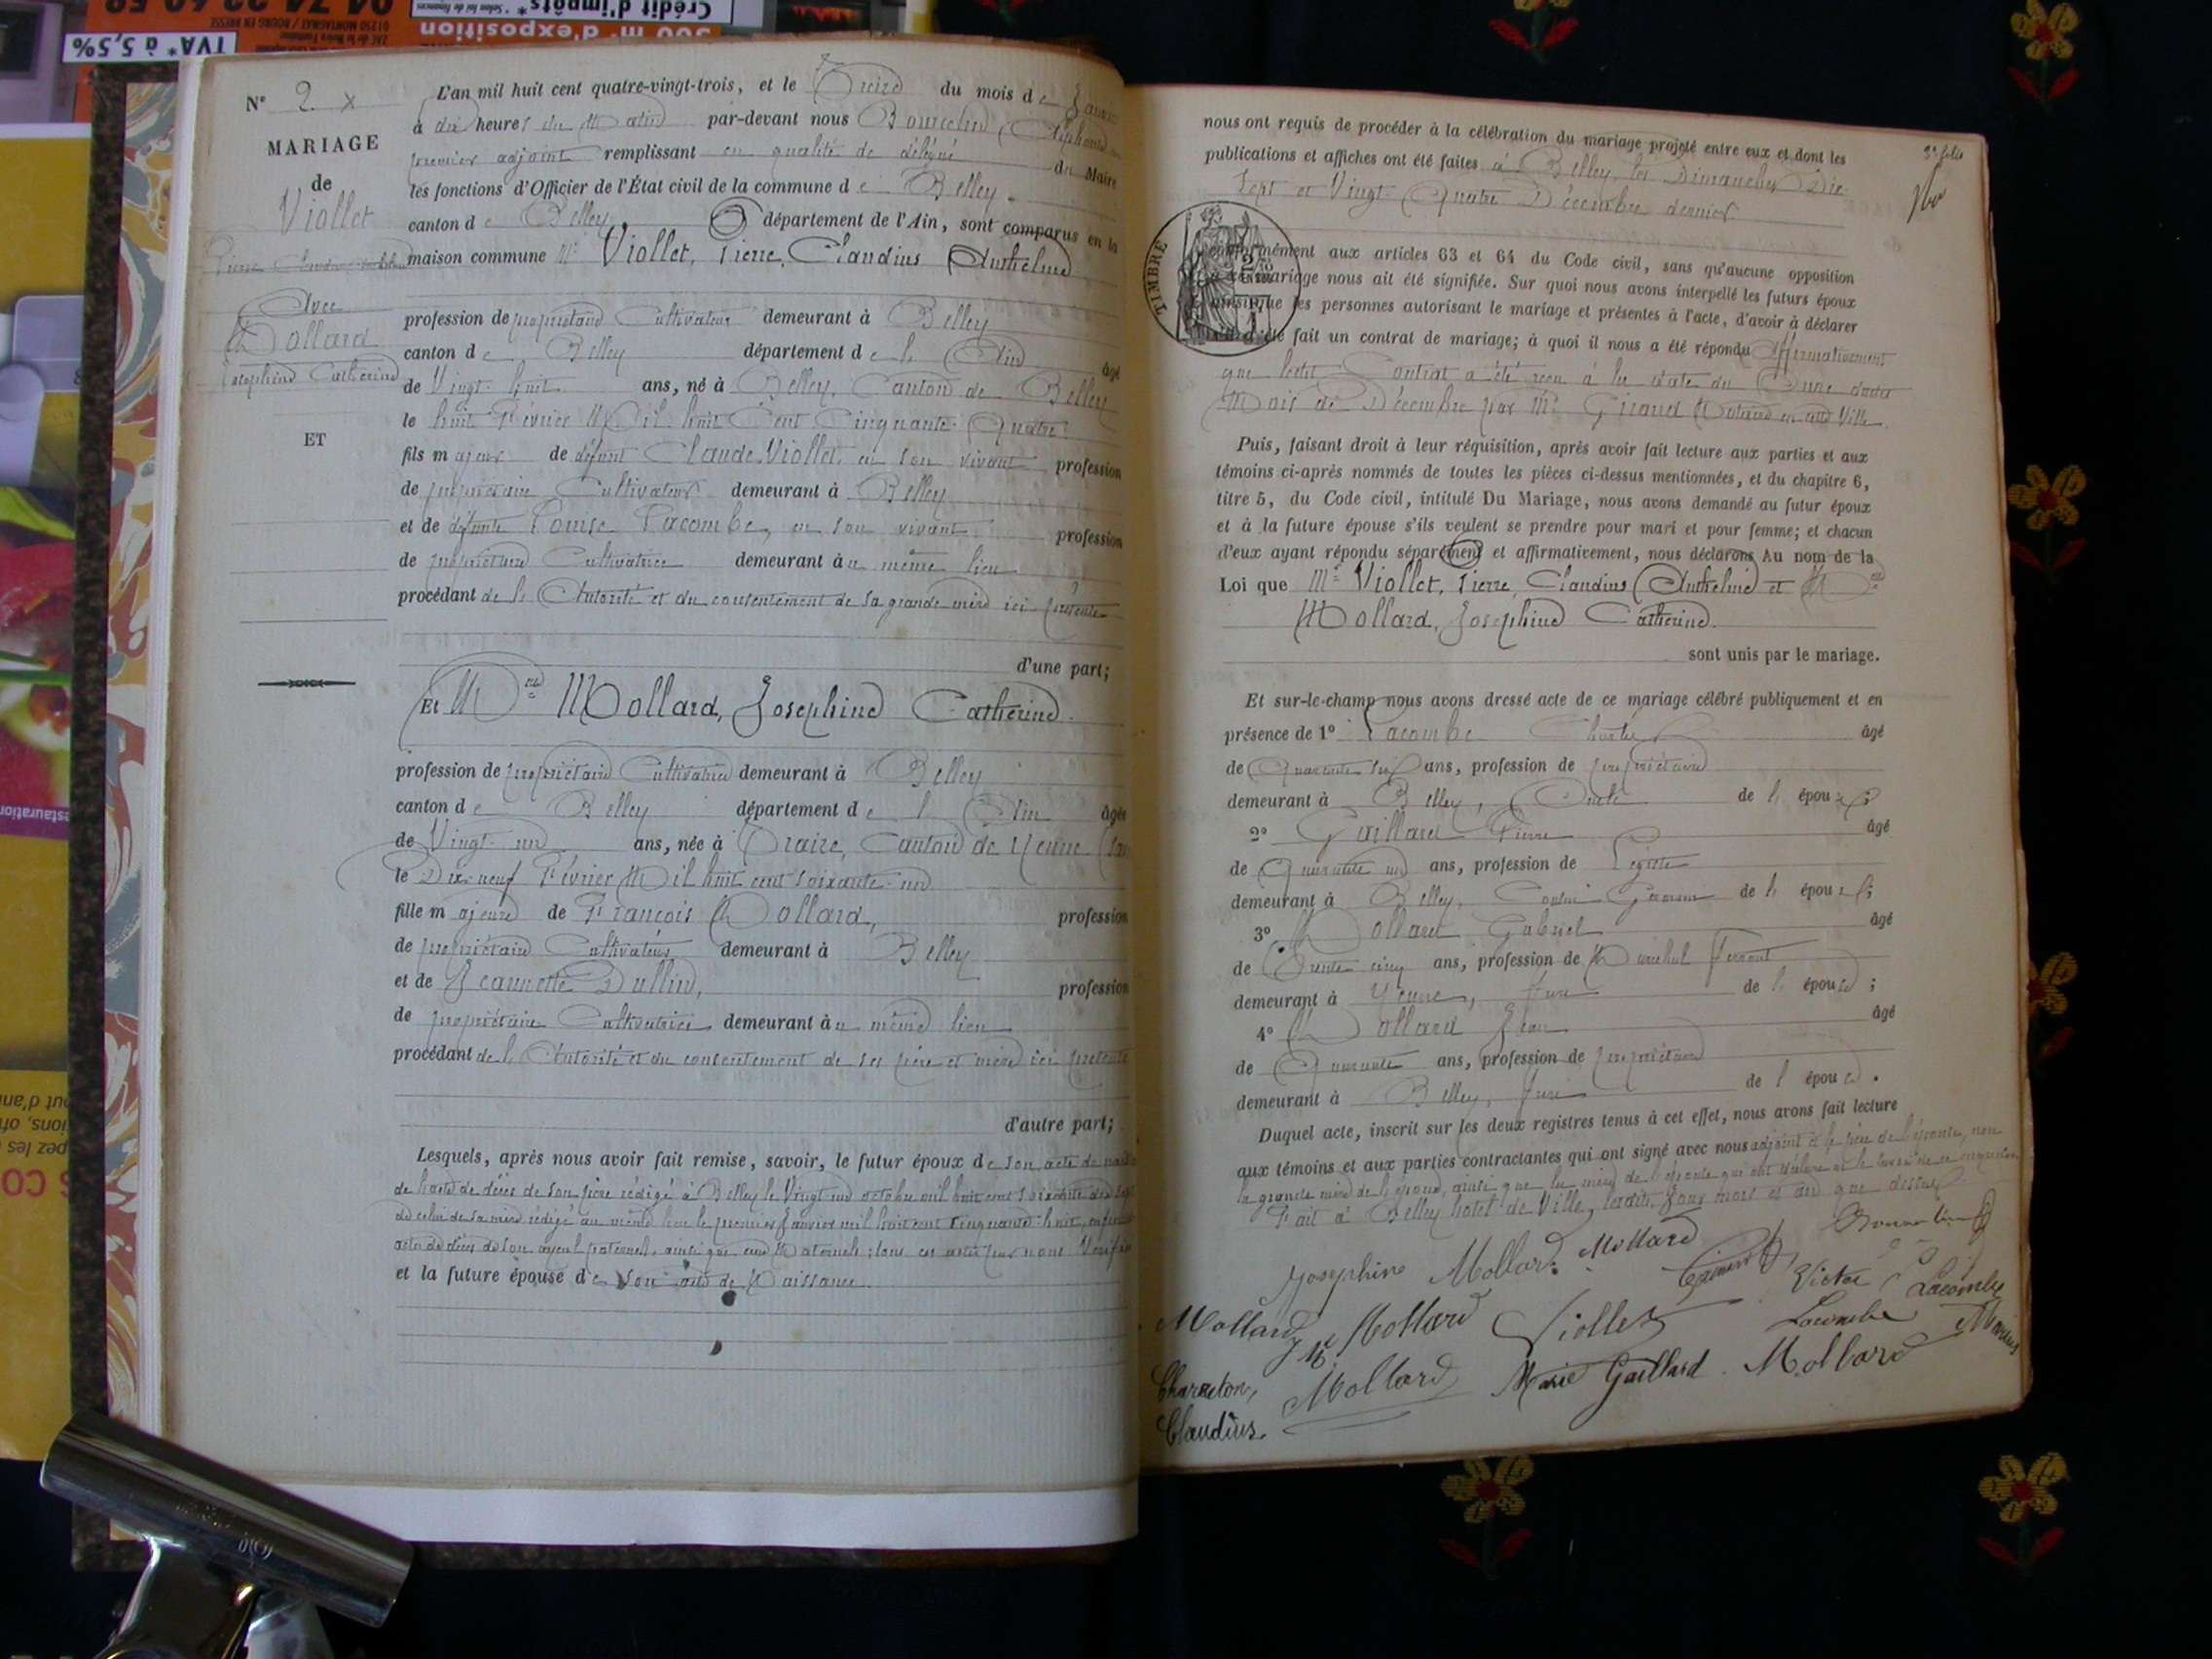 Crédit d'impôts*
300 m² d'exposition
TVA* à 5,5%
01250 MONTAGNAT / BOURG EN BRESSE
N° 2 x
MARIAGE
de
Viollet
Pierre Claudius
Avec
Mollard
Joséphine Catherine
ET
L'an mil huit cent quatre-vingt-trois, et le Treize du mois de Janvier
à dix heures du Matin par-devant nous
premier adjoint remplissant en qualité de délégué du Maire
les fonctions d'Officier de l'État civil de la commune de Belley
canton de Belley département de l'Ain, sont comparus en la
maison commune Mr Viollet, Pierre, Claudius Anthelme
profession de propriétaire Cultivateur demeurant à Belley
canton de Belley département de l'Ain âgé
de Vingt-huit ans, né à Belley, Canton de Belley
le huit Février Mil huit Cent Cinquante-Quatre
fils majeur de défunt Claude Viollet, en son vivant profession
de propriétaire Cultivateur demeurant à Belley
et de défunte Louise Lacombe, en son vivant profession
de propriétaire Cultivatrice demeurant au même lieu
procédant de l'Autorité et du consentement de sa grande mère ici présente
d'une part;
Et Melle Mollard, Joséphine Catherine
profession de propriétaire Cultivatrice demeurant à Belley
canton de Belley département de l'Ain âgée
de Vingt-un ans, née à Traize, Canton de Yenne
le Dix-neuf Février Mil huit cent soixante-un
fille majeure de François Mollard, profession
de propriétaire Cultivateur demeurant à Belley
et de Jeannette Dullin, profession
de propriétaire Cultivatrice demeurant au même lieu
procédant de l'Autorité et du consentement de ses père et mère ici présents
d'autre part;
Lesquels, après nous avoir fait remise, savoir, le futur époux de son acte de
de l'acte de décès de son père rédigé à Belley le Vingt un octobre mil huit cent soixante
de celui de sa mère rédigé au même lieu le premier Janvier mil huit cent cinquante-huit, enfin
acte de décès de son ayeul paternel, ainsi que ceux Maternels; tous ces actes par nous Vérifiés
et la future épouse de son acte de Naissance
3e folio
nous ont requis de procéder à la célébration du mariage projeté entre eux et dont les
publications et affiches ont été faites à Belley, les Dimanches Dix
Sept et Vingt-Quatre Décembre dernier
TIMBRE
conformément aux articles 63 et 64 du Code civil, sans qu'aucune opposition
mariage nous ait été signifiée. Sur quoi nous avons interpellé les futurs époux
ainsi que les personnes autorisant le mariage et présentes à l'acte, d'avoir à déclarer
été fait un contrat de mariage; à quoi il nous a été répondu Affirmativement
que ledit Contrat a été reçu à la date du Onze dudit
Mois de Décembre par Me Girand Notaire en cette Ville
Puis, faisant droit à leur réquisition, après avoir fait lecture aux parties et aux
témoins ci-après nommés de toutes les pièces ci-dessus mentionnées, et du chapitre 6,
titre 5, du Code civil, intitulé Du Mariage, nous avons demandé au futur époux
et à la future épouse s'ils veulent se prendre pour mari et pour femme; et chacun
d'eux ayant répondu séparément et affirmativement, nous déclarons Au nom de la
Loi que Mr Viollet, Pierre, Claudius Anthelme et Melle
Mollard, Joséphine Catherine
sont unis par le mariage.
Et sur-le-champ nous avons dressé acte de ce mariage célébré publiquement et en
présence de 1° Lacombe âgé
de Quarante ans, profession de propriétaire
demeurant à Belley, Oncle de l'époux;
2° Gaillard Pierre âgé
de Quarante un ans, profession de
demeurant à Belley, Cousin Germain de l'époux;
3° Mollard Gabriel âgé
de Trente cinq ans, profession de Maréchal Ferrant
demeurant à Yenne, frère de l'épouse;
4° Mollard Jean âgé
de Quarante ans, profession de propriétaire
demeurant à Belley, frère de l'épouse.
Duquel acte, inscrit sur les deux registres tenus à cet effet, nous avons fait lecture
aux témoins et aux parties contractantes qui ont signé avec nous adjoint et le père de l'épouse, non
la grande mère de l'époux, ainsi que la mère de l'épouse qui ont déclaré ne le savoir de ce requises
Fait à Belley hôtel de Ville, lesdits Jour mois et an que dessus
Joséphine Mollard. Mollard
Victor Lacombe
Mollard Mollard Viollet Lacombe Marius
Charreton Claudius. Mollard Marie Gaillard Mollard